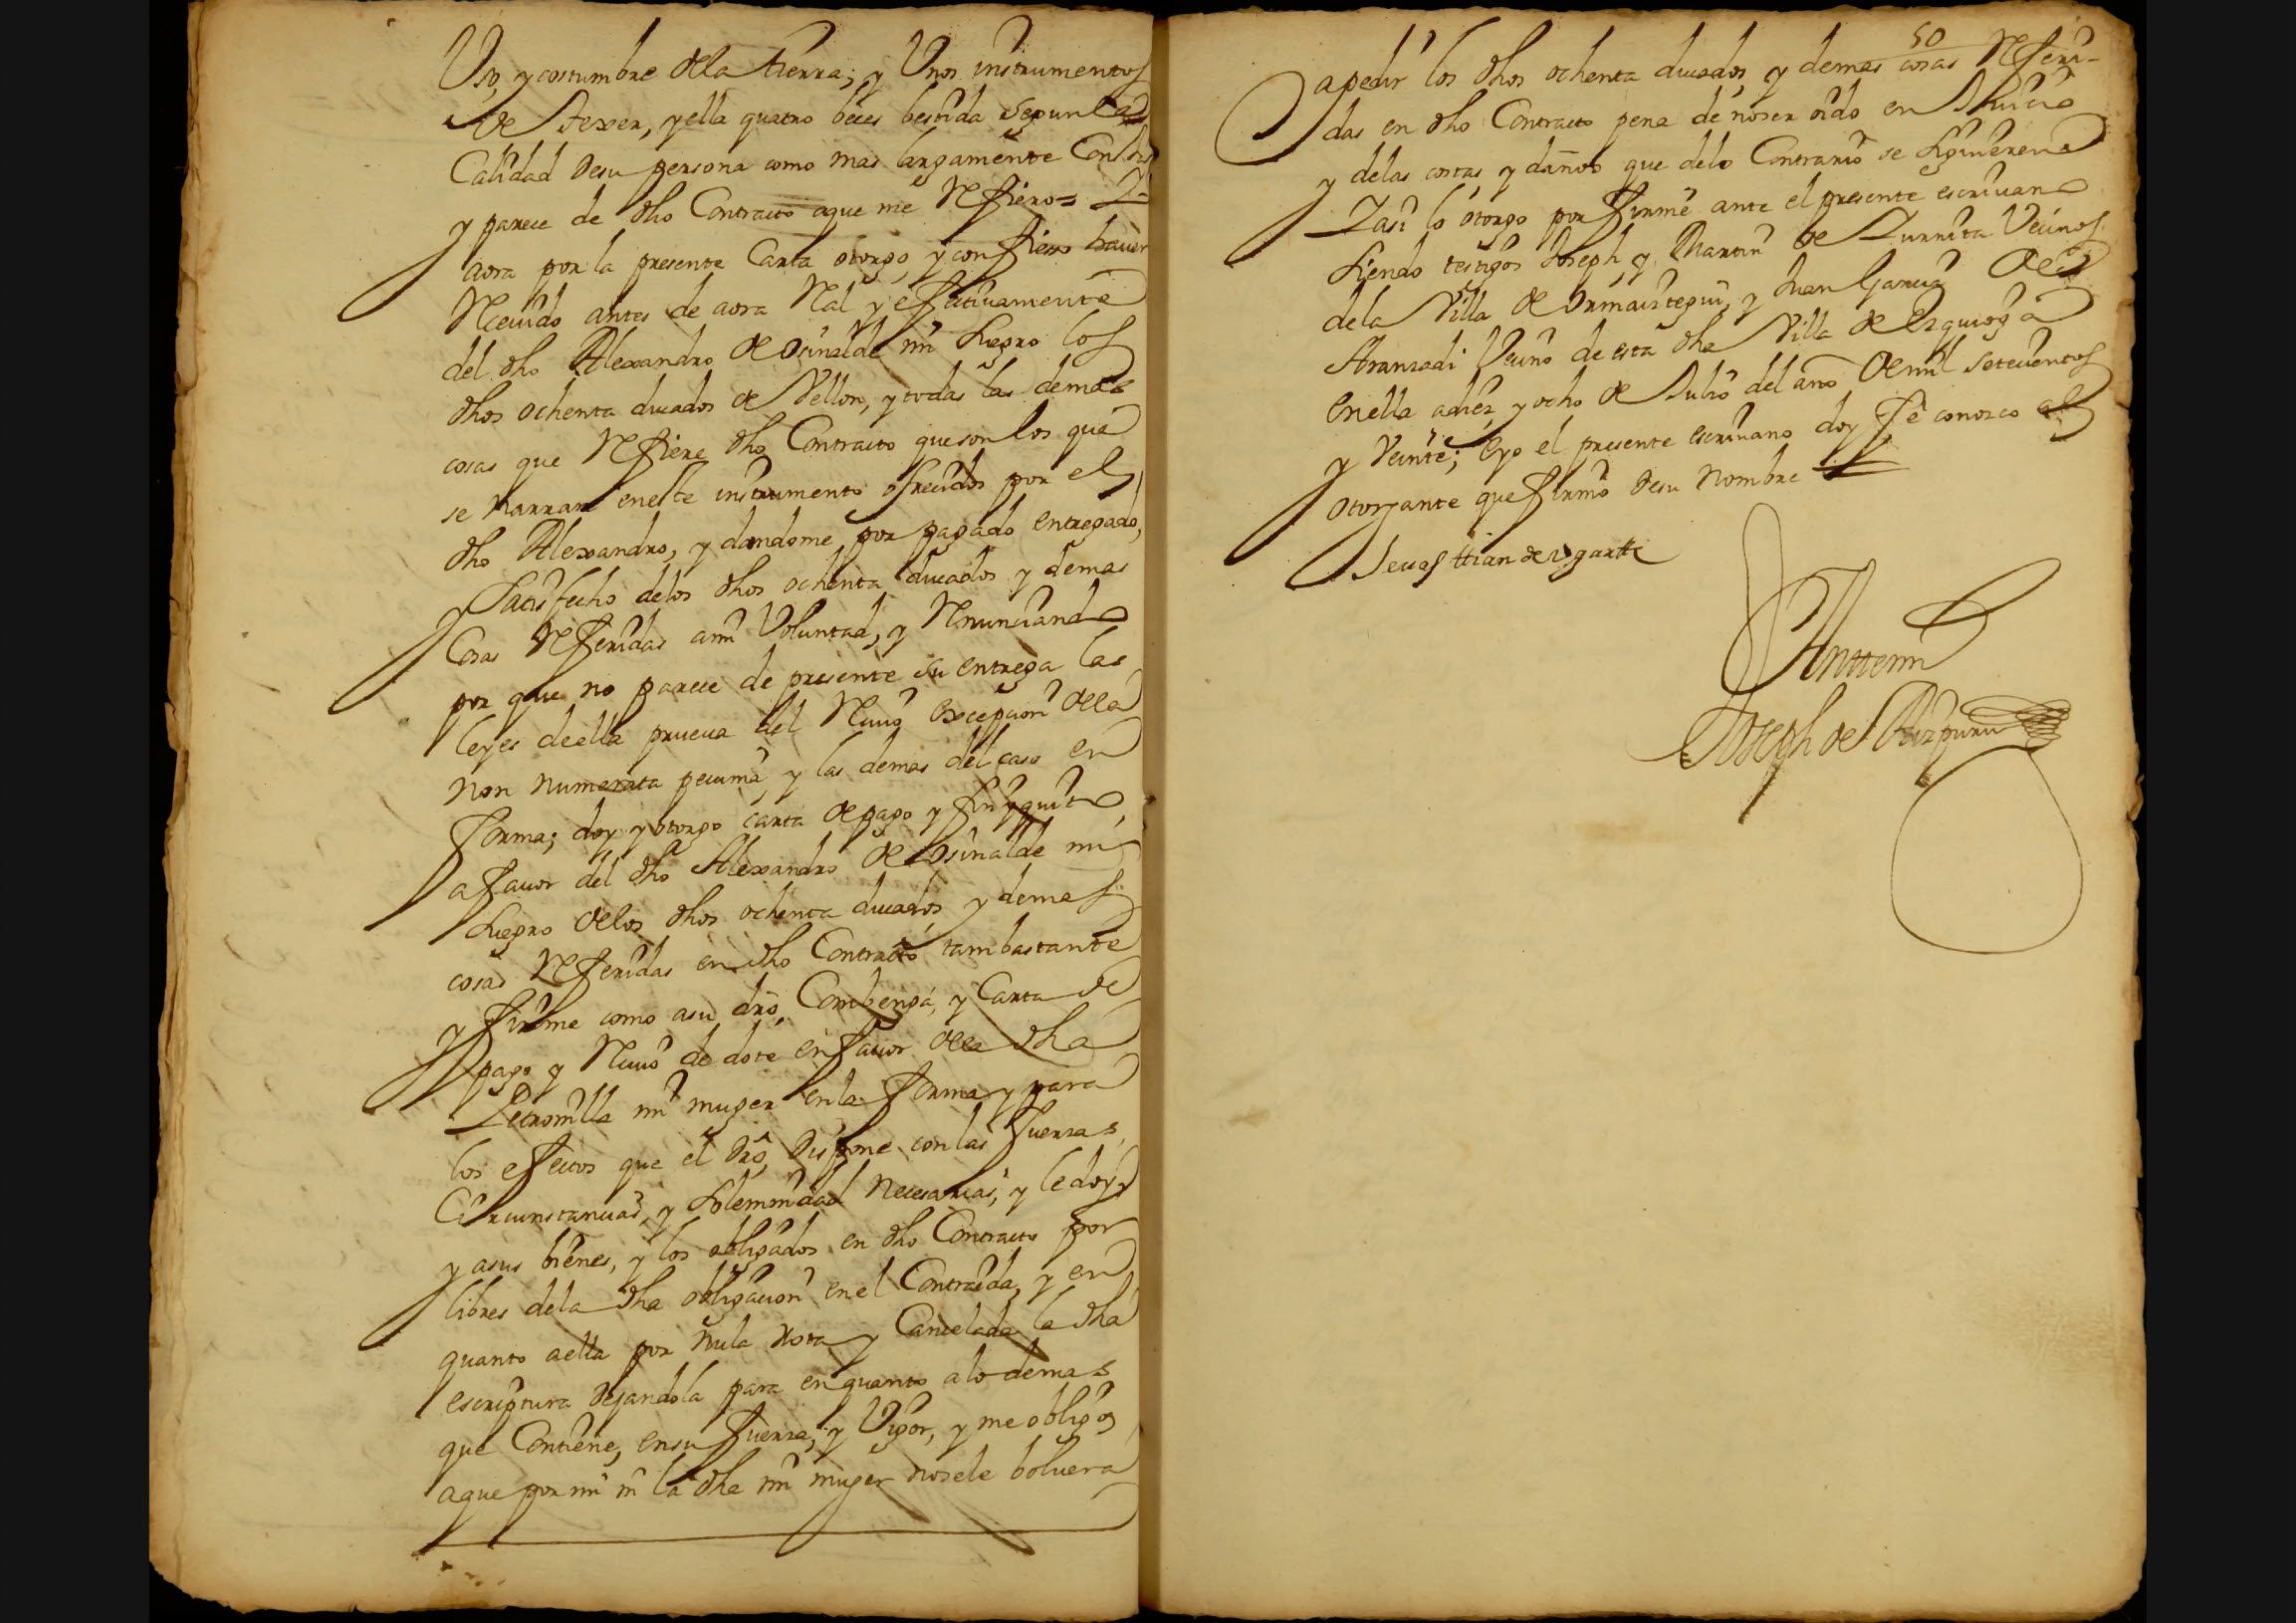 Uso, y costumbre dela tierra; y Unos instrumentos
de texer, y ella quatro beces bestida segun la
Calidad de su persona como mas largamente Consta
y parece de dho Contracto aque me Refiero = Y
aora por la presente Carta otorgo, y confieso hauer
Receuido antes de aora Real y efectiuamente
del dho Alexandro de Osinalde mi suegro los
dhos ochenta ducados de Vellon, y todas las demas
cosas que Refiere dho Contracto que son los que
se narran eneste instrumento ofrecidos por el
dho Alexandro, y dandome por pagado entregado,
y Satisfecho delos dhos ochenta ducados y demas
Cosas Referidas ami Voluntad, y Renunciando
por que no parece de presente su entrega las
leyes de ella prueua del Reciuo Excepcion dela
non numerata pecunia, y las demas del caso en
forma; doy y otorgo carta de pago y finyquito,
a fauor del dho Alexandro de Osinalde mi
suegro delos dhos ochenta ducados, y demas
cosas Referidas en dho Contracto tam bastante
y firme como asu dro, Combenga, y Carta de
pago y Reciuo de dote en fauor dela dha
Petronilla mi muger enla forma y para
los efectos que el dro, dispone con las fuerzas,
Circunstancias, y solemnidad necesarias; y le doy
y asus bienes, y los obligados en dho Contracto por
libres dela dha obligacion enel Contraida, y en
quanto aella por nula Rota y Cancelada la dha
escriptura dejandola para en quanto alo demas
que Contiene, ensu fuerza, y Vigor, y me obligo
aque por mi ni la dha mi muger nosele boluera
50
apedir los dhos ochenta ducados, y demas cosas Referi-
das en dho Contracto pena de no ser oido en Juicio
y delas costas, y daños que delo Contrario se siguieren
Yasi lo otorgo por firme ante el presente escriuano
siendo testigos Joseph, y Martin de Zurrita Vecinos
dela Villa de Ormaiztegui, y Juan Garcia de
Aranzadi Vecino de esta dha Villa de Ezquioga
Enella adiez, y ocho de Julio del año de mil setecientos
y Veinte; Eyo el presente escriuano doy fe conozco al
otorgante que firmo de su nombre
Seuasttian de Ugartte
Anttemi
Joseph de Aizpuru